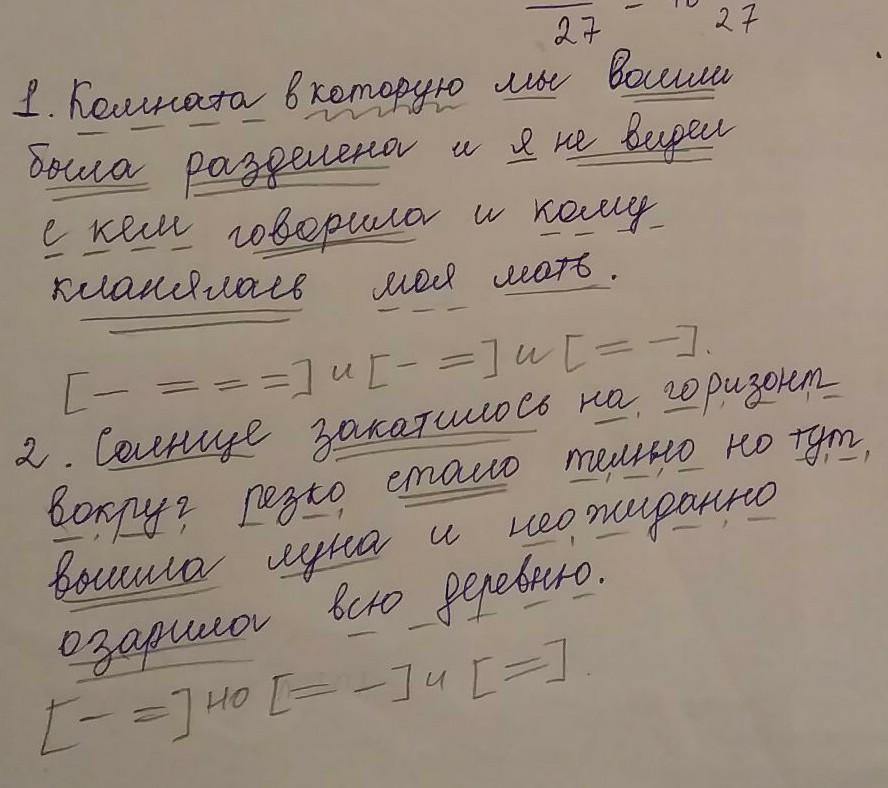 27 - 27
1. Комната в которую мы вошли
была разделена и я не видел
с кем говорила и кому
кланялась моя мать.
[- = = =] и [- =] и [= -].
2. Солнце закатилось на горизонт
вокруг резко стало темно но тут
вышла луна и неожиданно
озарила всю деревню.
[- =] но [= -] и [=].